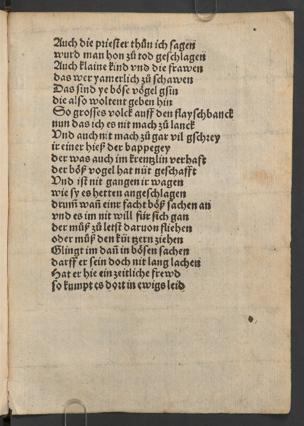 Auch die priester thůn ich sagen
wurd man hon zů tod geschlagen
Auch klaine kind vnd die frawen
das wer yamerlich zů schawen
Das sind ye böse vögel gsin
die also woltent geben hin
So grosses volck auff den flayschbanck
nun das ich es nit mach zů lanck
Vnd auch nit mach zů gar vil gschrey
ir einer hieß der bappegey
der was auch im krentzlin verhaft
der böß vogel hat nüt geschafft
Vnd ist nit gangen ir wagen
wie sy es hetten angeschlagen
drum̃ wan̄ einr facht böß sachen an
vnd es im nit will für sich gan
der můß zů letst daruon fliehen
oder můß den kürtzern ziehen
Glingt im dan̄ in bösen sachen
darff er sein doch nit lang lachen
Hat er hie ein zeitliche frewd
so kumpt es dort in ewigs leid